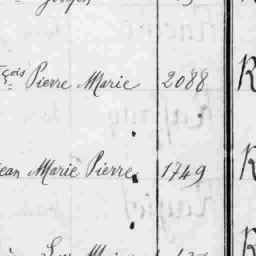 çois Pierre Marie 2088 R
ean Marie Pierre 1749 R
R